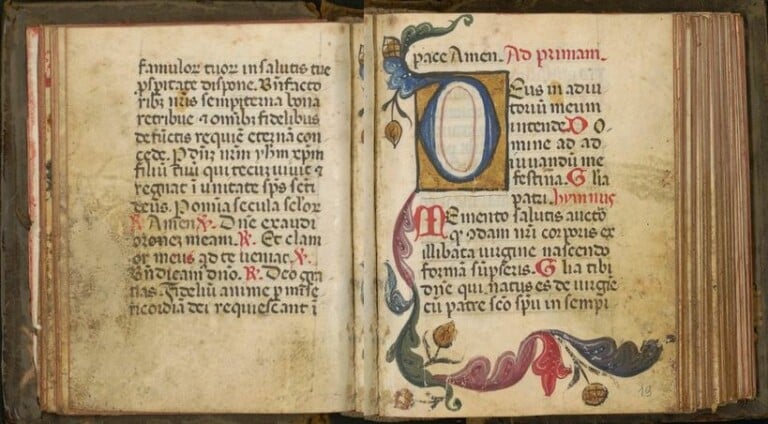 famulor tuor in salutis tue
ꝓspitate dispone. Bn̄facto
ribꝫ nr̄is sempiterna bona
retribue ⁊ om̄ibꝫ fidelibus
defūctis requiē eternā con
cede. P dn̄ꝫ nrm̄ yhm̄ xpm̄
filiū tuū qui tecū uiuit ⁊
regnat ī unitate sp̄s sc̄ti
deus. P om̄ia secula sc̄lor
℟ Amen ℣. Dn̄e exaudi
or̄oneꝫ meam. ℟. Et clam
or meus ad te ueniat. ℣.
Bn̄dicam dn̄o. ℟. Deo gr̄a
tias. Fideliū anime p mīse
ricordia dei requiescant ī
pace Amen. Ad primam.
Deus in adiu
toriū meum
intende. Do
mine ad ad
iuuandū me
festina. Glīa
patri. hymnus
Memento salutis aucto
qꝫ ꝙdam nr̄i corporis ex
illibata uirgine nascendo
formā sūpseris. Glīa tibi
dn̄e qui natus es de uirgīe
cū patre sc̄o sp̄u in sempi
19